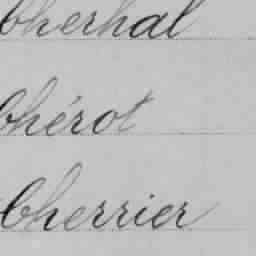 Cherhal
Chérot
Cherrier